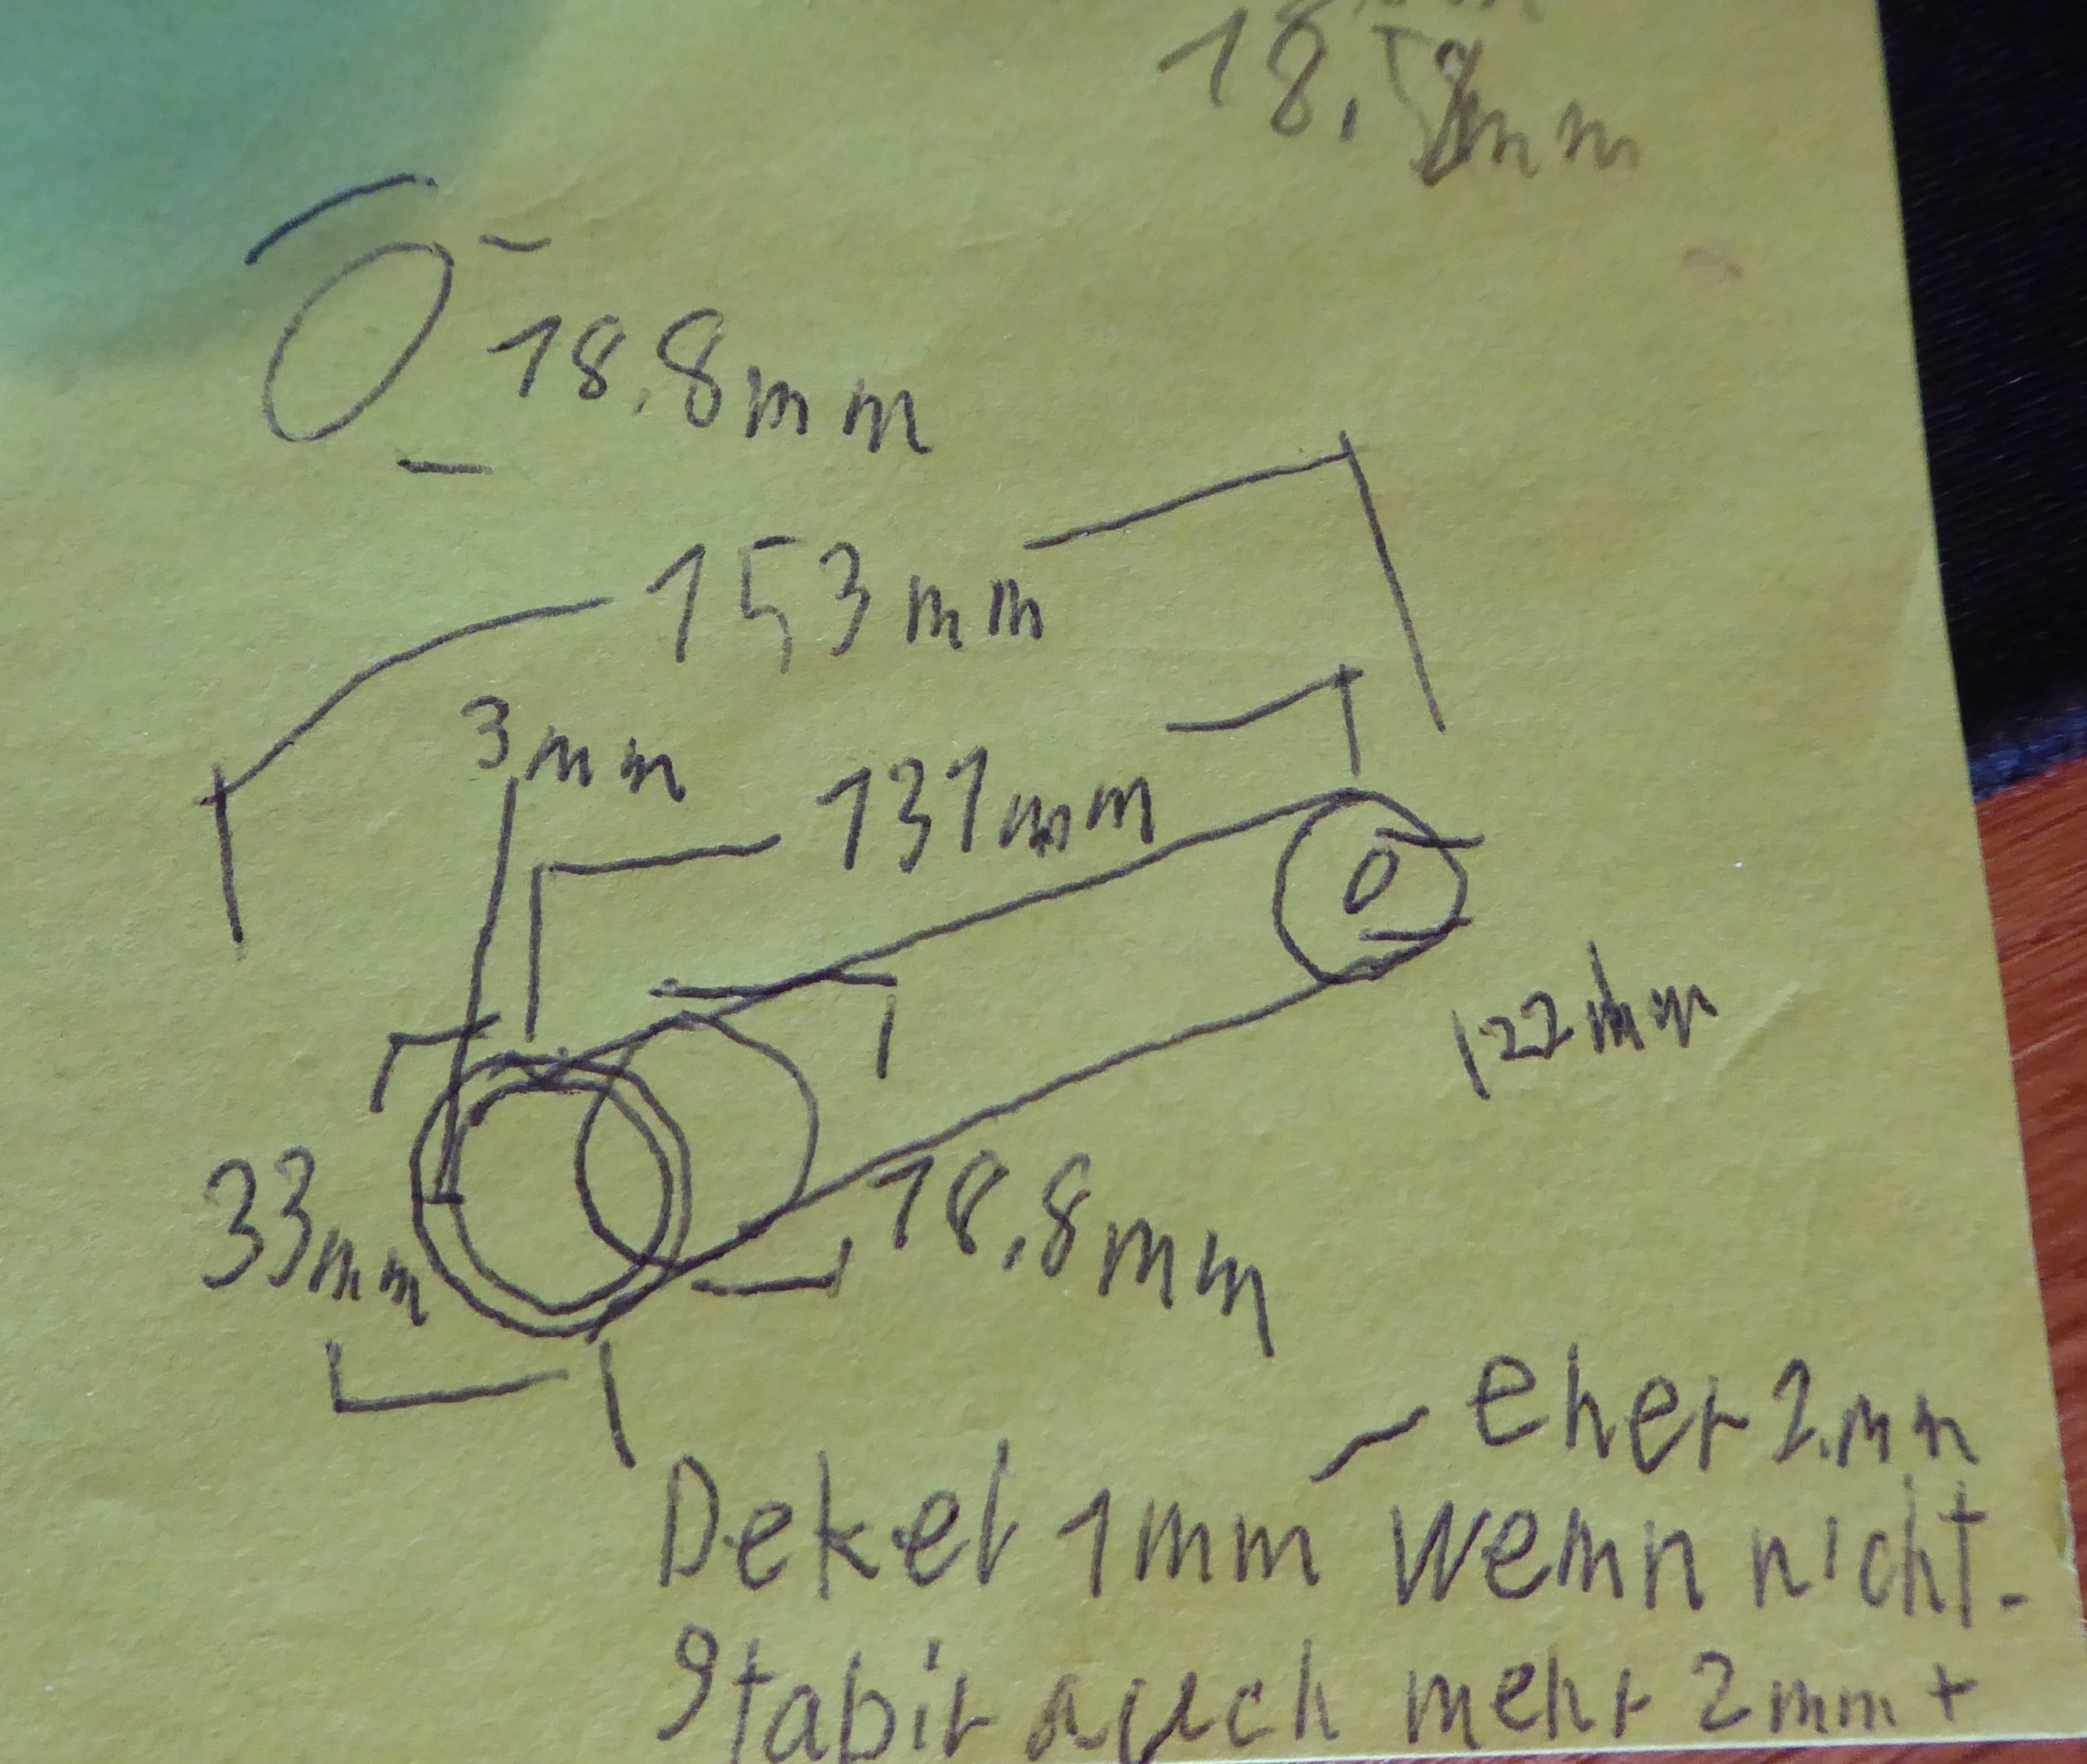 18.8mm
18.8mm
153mm
3mm
131mm
122mm
33mm
18.8mm
eher 2mm
Dekel 1mm wemn nicht.
Stabir auch mehr 2mm +